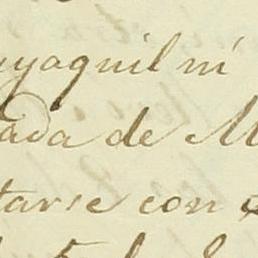 uyaquil ni
ada de M
tarse con